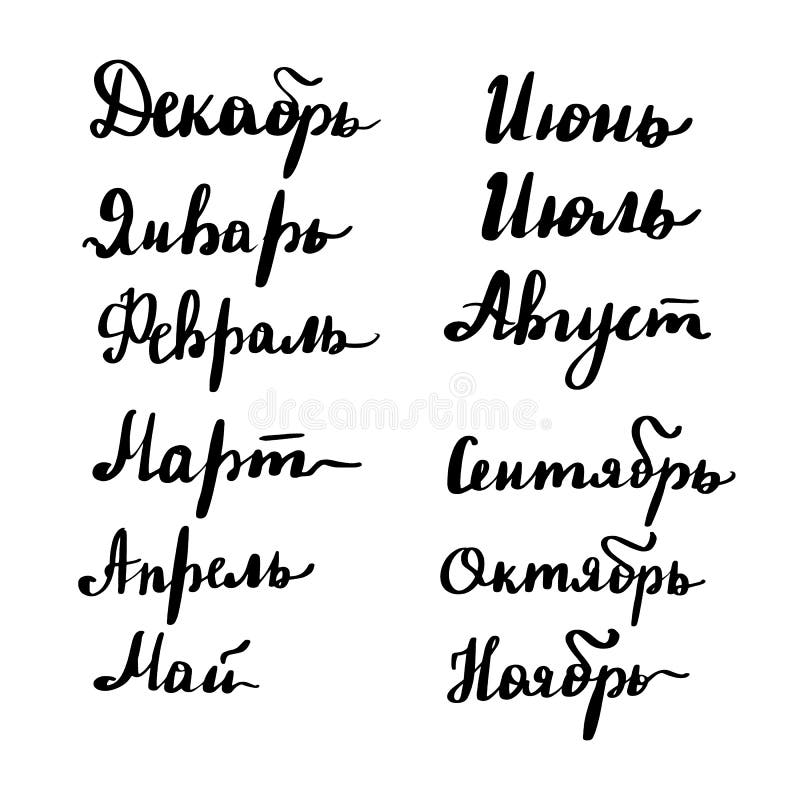 Декабрь
Январь
Февраль
Март
Апрель
Май
Июнь
Июль
Август
Сентябрь
Октябрь
Ноябрь
dreamstime